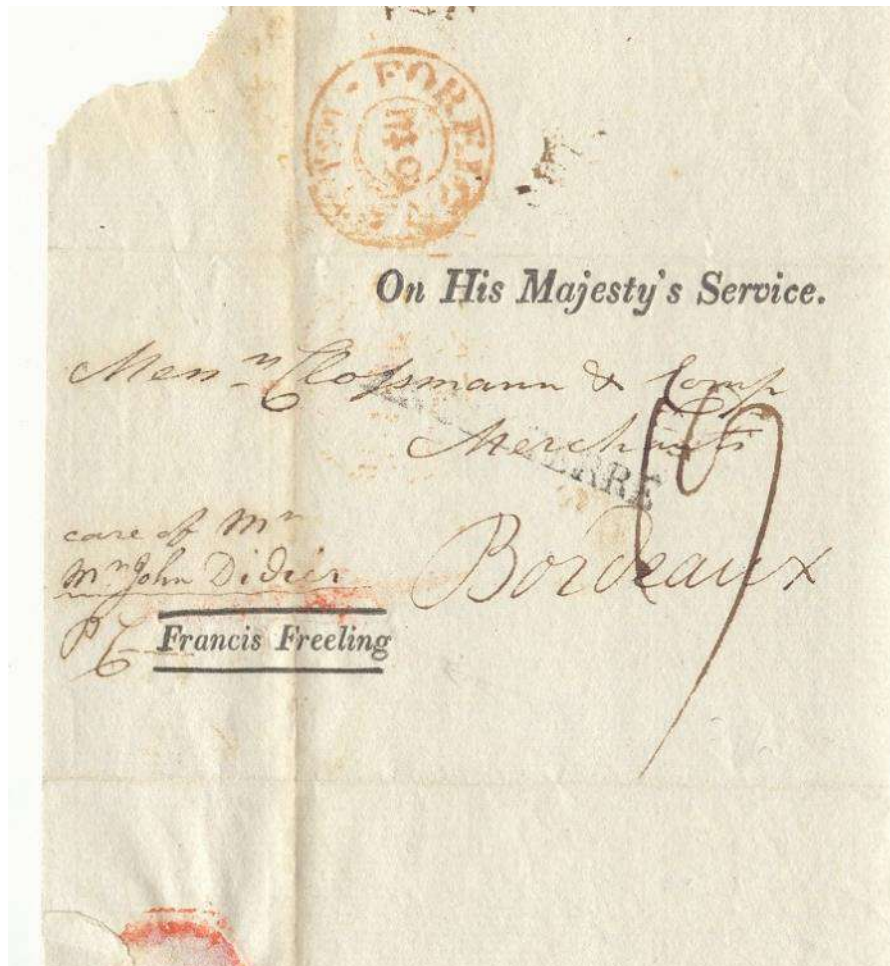 FOREIGN
On His Majesty's Service.
Mess.rs Clossmann & Comp
Merchants
ERRE
care of Mr
Mr John Didier
Bordeaux
Francis Freeling